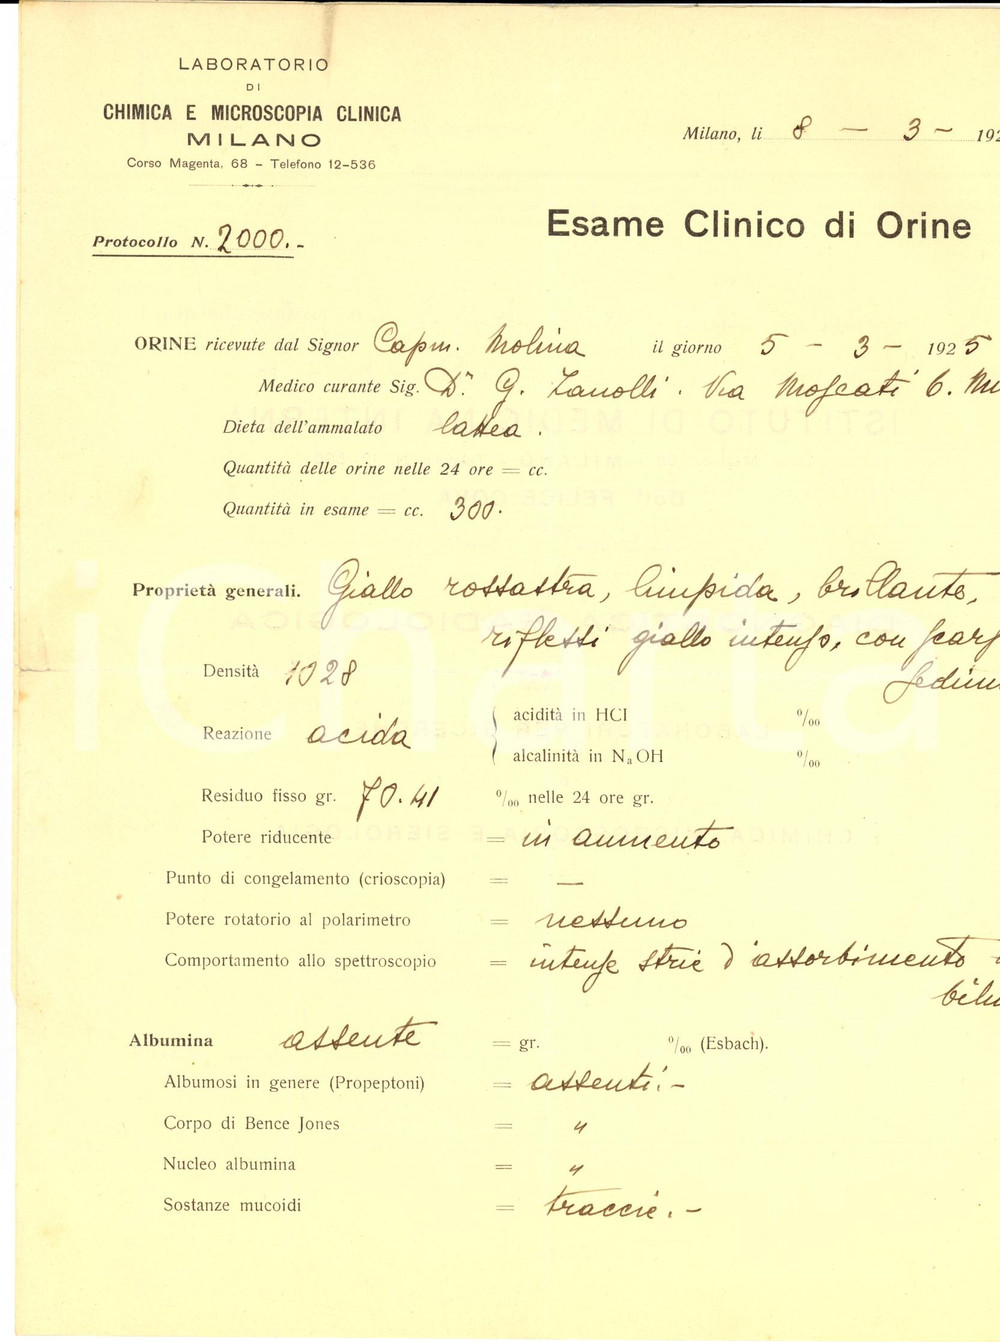 LABORATORIO
DI
CHIMICA E MICROSCOPIA CLINICA
MILANO
Corso Magenta, 68 - Telefono 12-536
Milano, li 8 - 3 - 192
Protocollo N. 2000.-
Esame Clinico di Orine
ORINE ricevute dal Signor Capm. Molina il giorno 5 - 3 - 1925
Medico curante Sig. Dr. G. Zanolli. Via Moscati 6. M
Dieta dell'ammalato lattea.
Quantità delle orine nelle 24 ore = cc.
Quantità in esame = cc. 300.
Proprietà generali. Giallo rossastra, limpida, brillante,
riflessi giallo intenso, con scars
sedim
Densità 1028
Reazione acida { acidità in HCl ‰
alcalinità in NaOH ‰
Residuo fisso gr. 70.41 ‰ nelle 24 ore gr.
Potere riducente = in aumento
Punto di congelamento (crioscopia) = —
Potere rotatorio al polarimetro = nessuno
Comportamento allo spettroscopio = intense strie d'assorbimento
bilu
Albumina assente = gr. ‰ (Esbach).
Albumosi in genere (Propeptoni) = assenti.-
Corpo di Bence Jones = "
Nucleo albumina = "
Sostanze mucoidi = traccie.-
iCharta